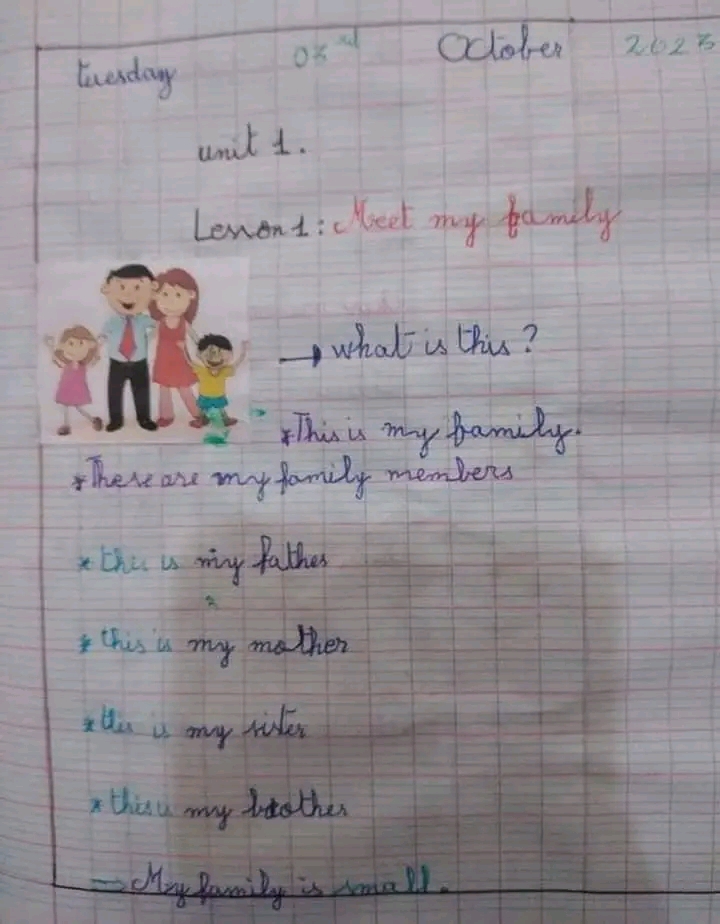 tuesday 03rd October 2023
unit 1.
Lesson 1: Meet my family
→ what is this ?
*This is my family.
*These are my family members
* this is my father
* this is my mother
* this is my sister
* this is my brother
→ My family is small.